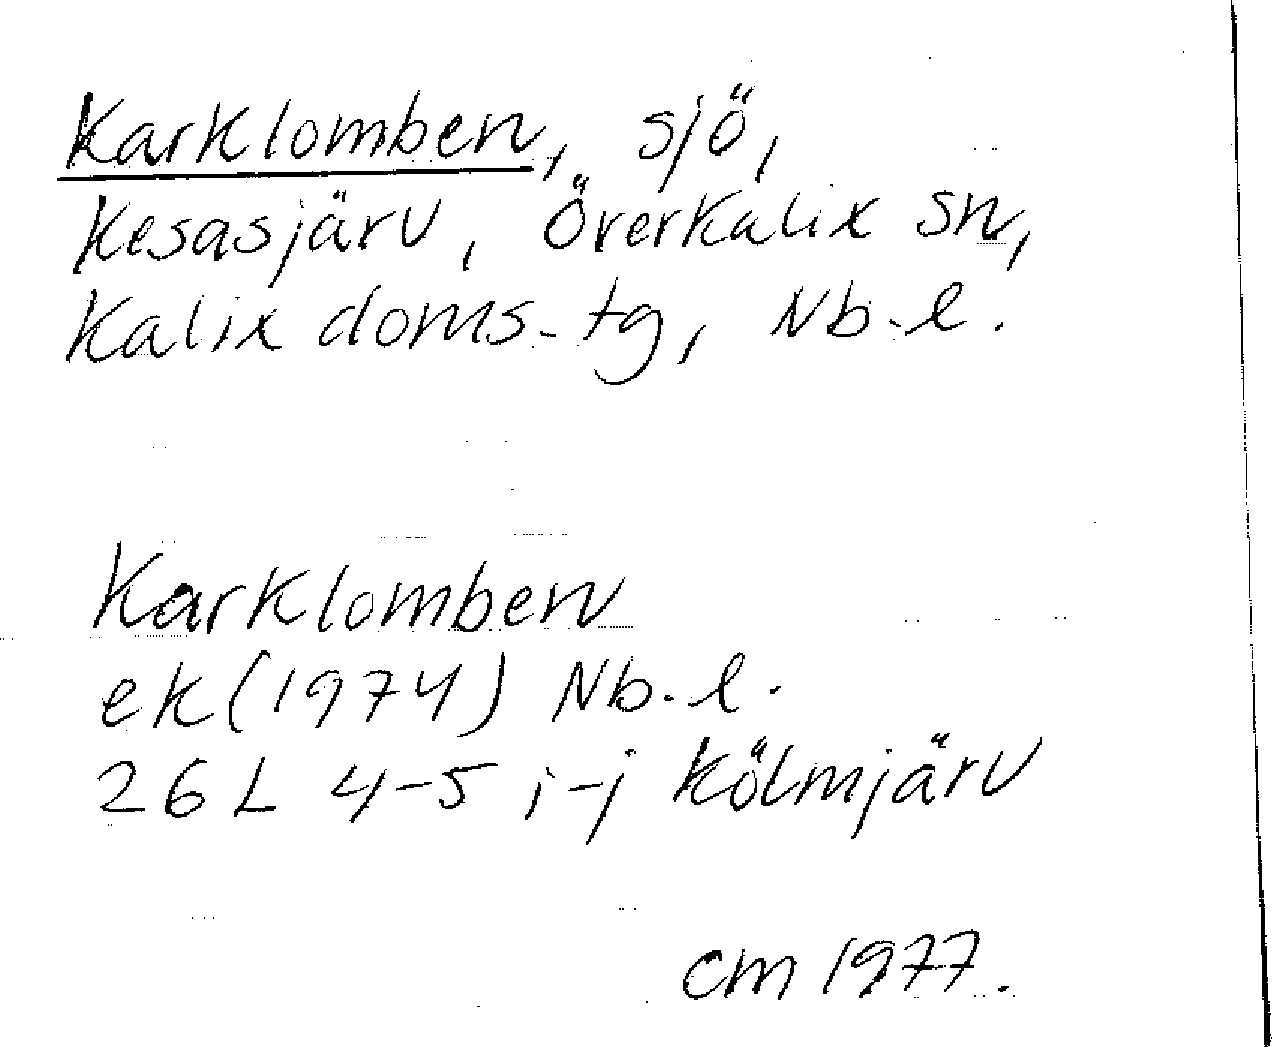 Karklomben, sjö,
Kesasjärv, Överkalix sn,
Kalix doms. tg, Nb.l.
Karklomben
ek (1974) Nb.l.
26 L 4-5 i-j Kölmjärv
CM 1977.